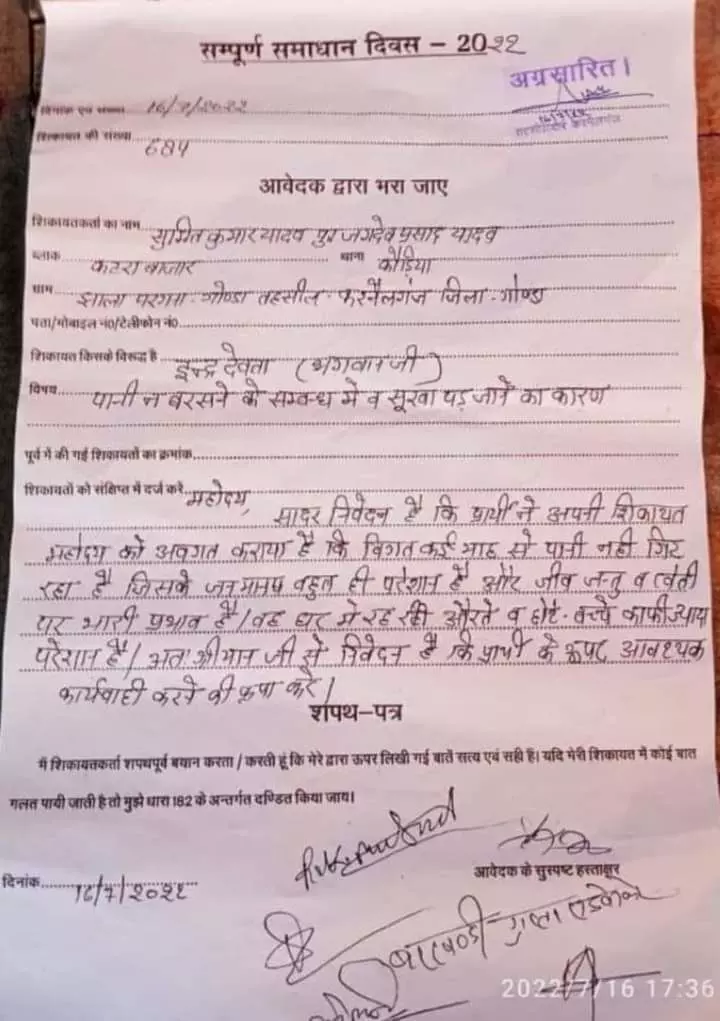 सम्पूर्ण समाधान दिवस – 2022
अग्रसारित।
दिनांक एवं समय 16/7/2022
शिकायत की संख्या
आवेदक द्वारा भरा जाए
शिकायतकर्ता का नाम सुमित कुमार यादव पुत्र जगदेव प्रसाद यादव
ब्लाक कटरा बाजार थाना कौडिया
ग्राम झाला परगना-गोण्डा तहसील-करनैलगंज जिला-गोण्डा
पता/मोबाइल नं0/टेलीफोन नं0
शिकायत किसके विरूद्ध है इन्द्र देवता (भगवान जी)
विषय पानी न बरसने के सम्बन्ध में व सूखा पड़ जाने का कारण
पूर्व में की गई शिकायतों का क्रमांक
शिकायतों को संक्षिप्त में दर्ज करें महोदय,
सादर निवेदन है कि प्रार्थी ने अपनी शिकायत
महोदय को अवगत कराया है कि विगत कई माह से पानी नही गिर
रहा है जिसके जनमानष बहुत ही परेशान है और जीव जन्तु व खेती
पर भारी प्रभाव है/वह घर मे रह रही औरते व छोटे-बच्चे काफी ज्यादा
परेशान है/अतः श्रीमान जी से निवेदन है कि प्रार्थी के ऊपर आवश्यक
कार्यवाही करने की कृपा करे/
शपथ–पत्र
मैं शिकायतकर्ता शपथपूर्व बयान करता / करती हूं कि मेरे द्वारा ऊपर लिखी गई बातें सत्य एवं सही हैं। यदि मेरी शिकायत में कोई बात
गलत पायी जाती है तो मुझे धारा 182 के अन्तर्गत दण्डित किया जाय।
आवेदक के सुस्पष्ट हस्ताक्षर
दिनांक 16/7/2022
गुप्ता एडवोकेट
2022/7/16 17:36